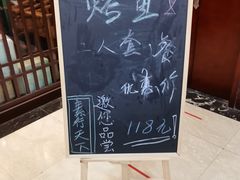 烤鱼
二人套餐
优惠价
118元!
邀您品尝
秦行天下